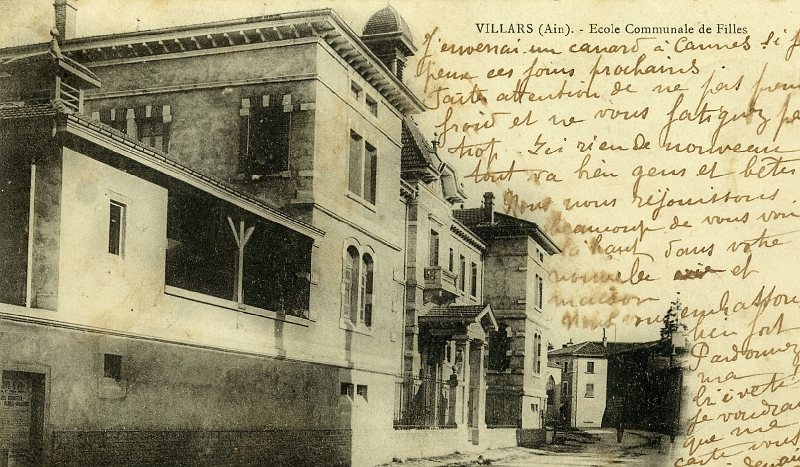 VILLARS (Ain). - Ecole Communale de Filles
J'enverrai un canard à Cannes si je
peux ces jours prochains
Faite attention de ne pas prendre
froid et ne vous fatiguez pas
trop. Ici rien de nouveau
tout va bien gens et bêtes
Nous nous réjouissons
beaucoup de vous voir
là haut dans votre
nouvelle et
maison
Nous vous embrassons
bien fort
Pardonnez
ma
brièveté
je voudrais
que ma
carte vous